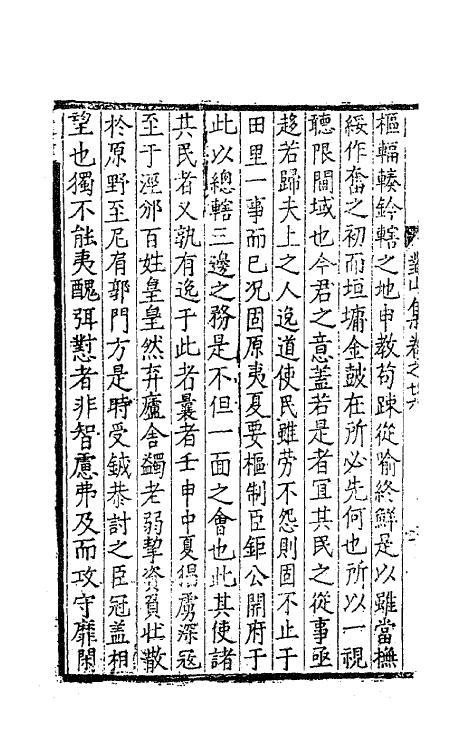 樞輻輳鈐轄之地申教苟踈從喻終鮮是以雖當撫
綏作奮之初而垣墉金皷在所必先何也所以一視
聽限閫域也今君之意蓋若是者宜其民之從事亟
趍若歸夫上之人逸道使民雖勞不怨則固不止于
田里一事而巳况固原夷夏要樞制臣鉅公開府于
此以總轄三邊之務是不但一面之會也此其使諸
其民者又孰有逸于此者曩者壬申中夏獯虜深寇
至于涇邠百姓皇皇然弃廬舍蠲老弱挈資負壯散
於原野至尼有郭門方是時受鉞恭討之臣冠盖相
望也獨不能夷醜弭懟者非智慮弗及而攻守靡閑
對山集卷之